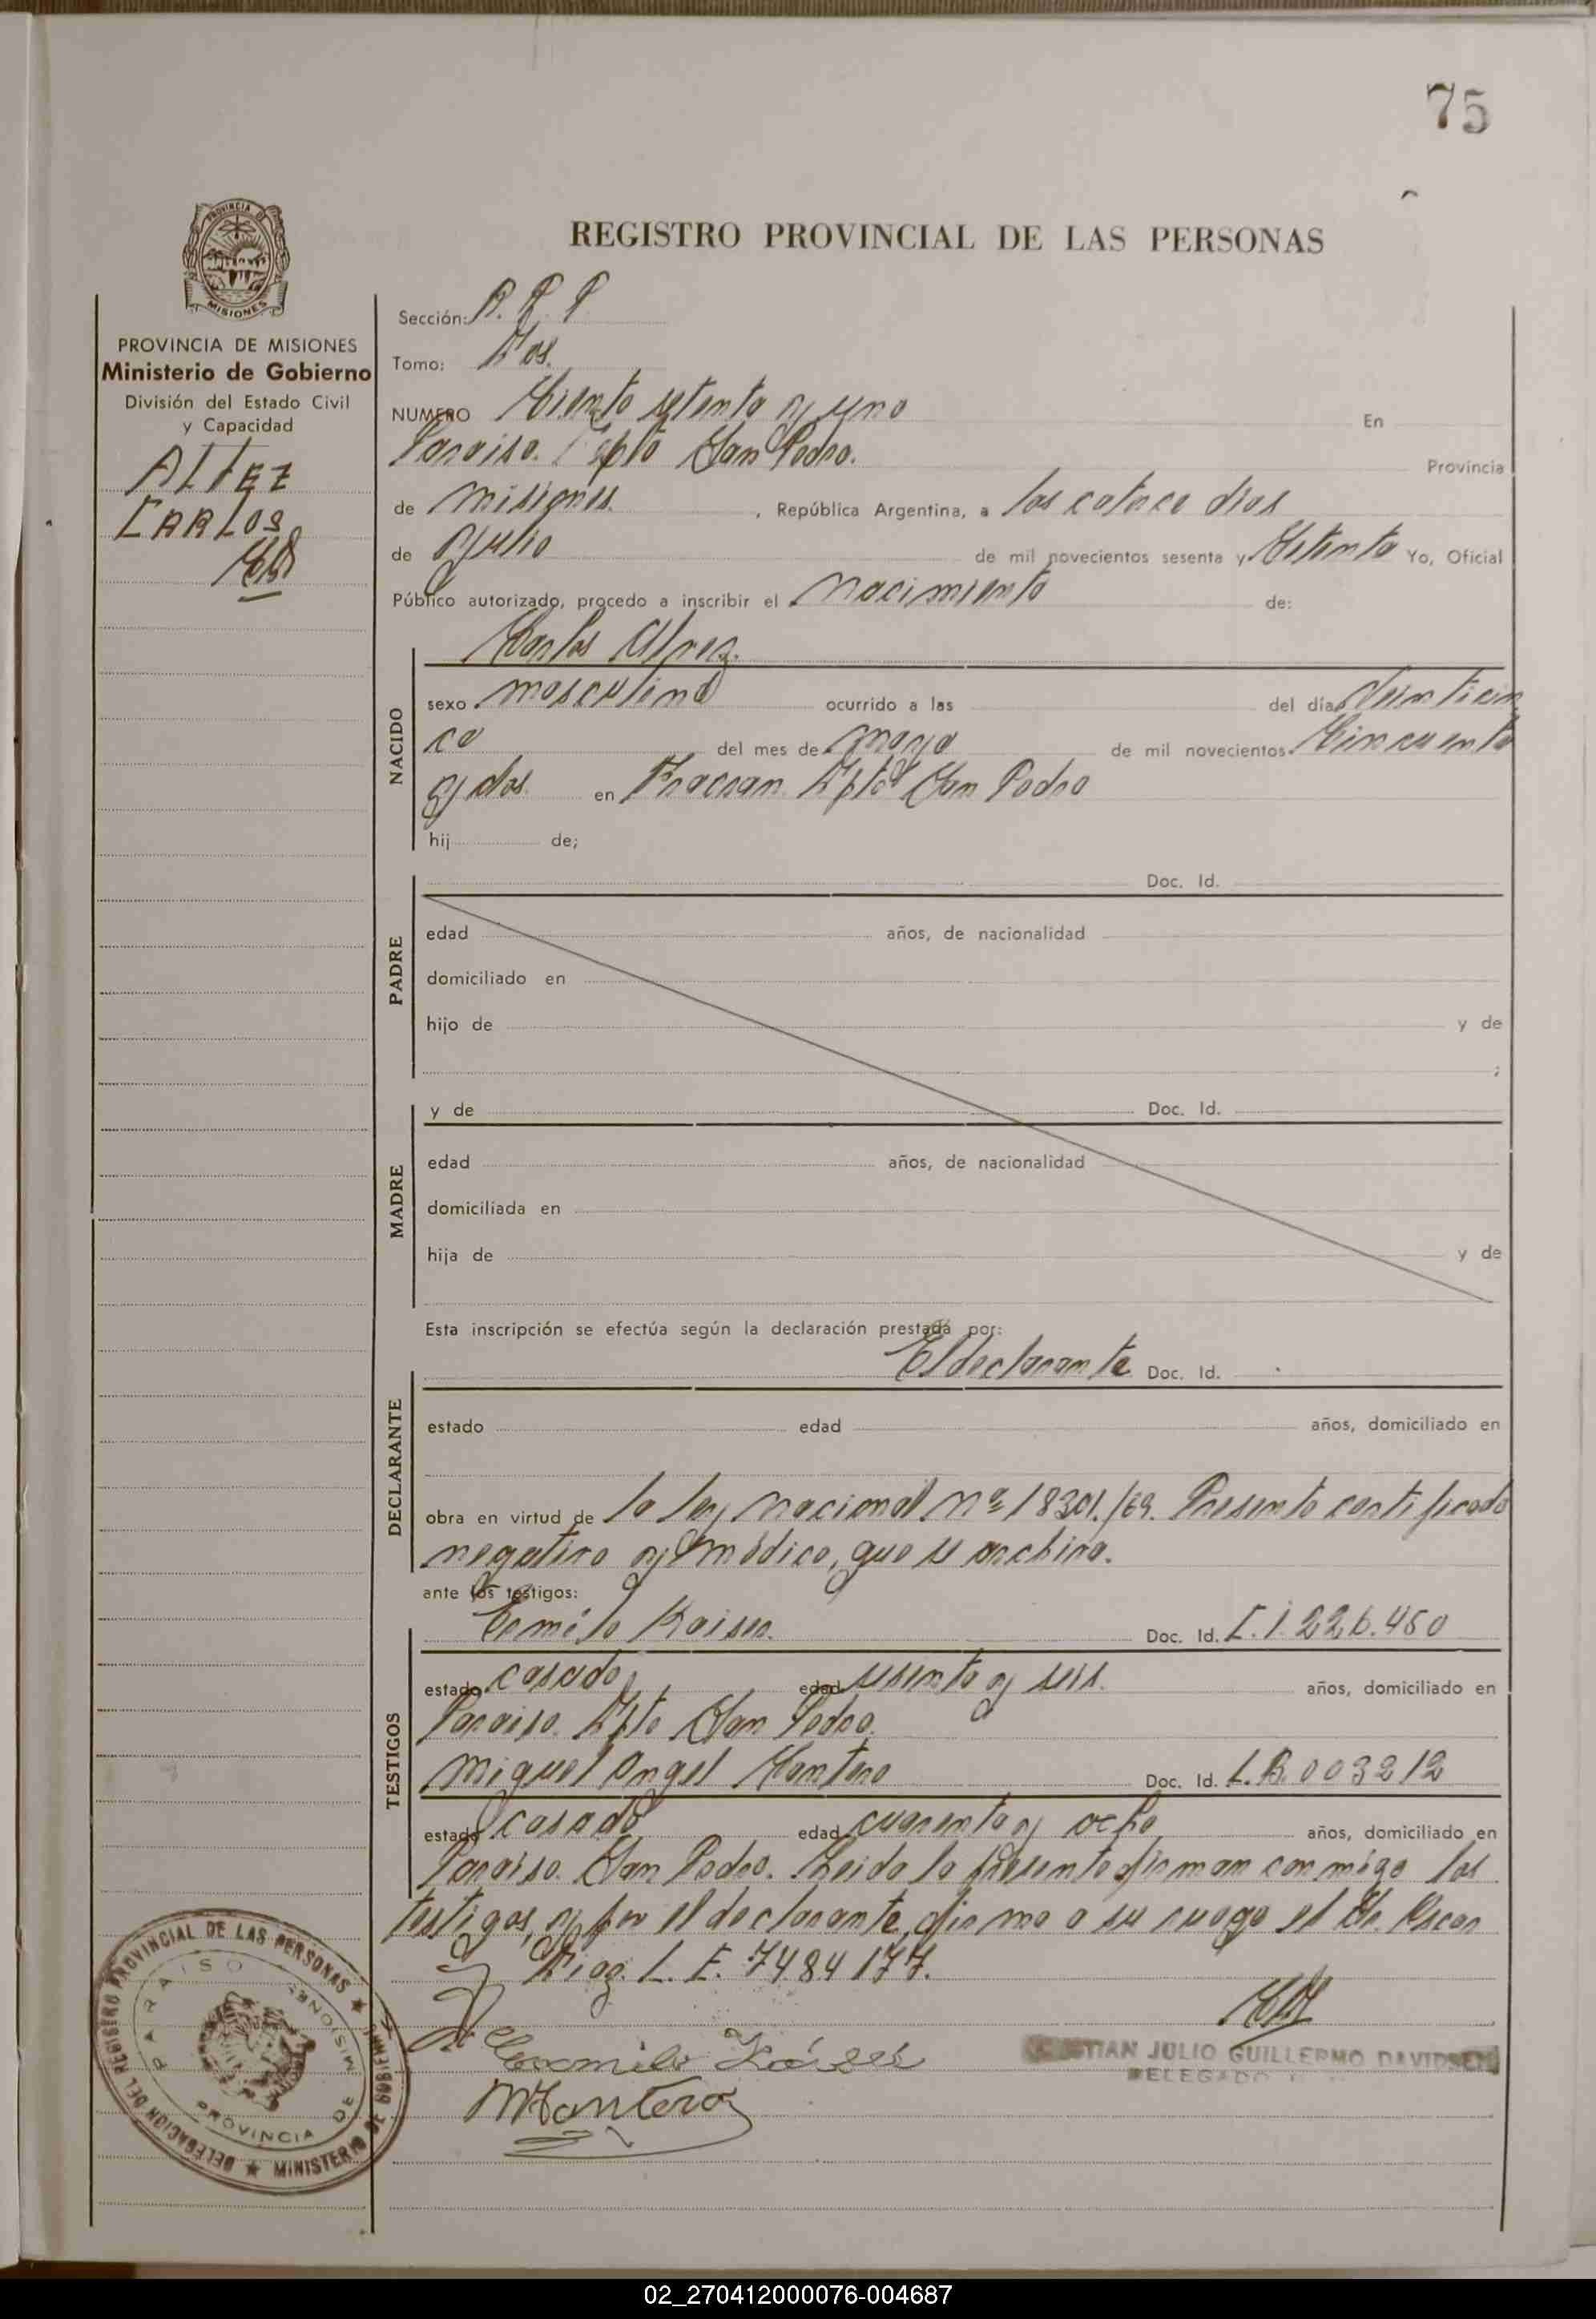 75
REGISTRO PROVINCIAL DE LAS PERSONAS
PROVINCIA DE
MISIONES
PROVINCIA DE MISIONES
Ministerio de Gobierno
División del Estado Civil
y Capacidad
ALTEZ
CARLOS
Sección: R. P. P
Tomo: Dos.
NUMERO Ciento setenta y uno En
Paraiso. Dpto San Pedro. Provincia
de misiones. , República Argentina, a los catorce dias
de Julio de mil novecientos sesenta y Setenta Yo, Oficial
Público autorizado, procedo a inscribir el Nacimiento de:
Carlos
NACIDO
sexo masculino ocurrido a las del día veinticin
co del mes de mayo de mil novecientos Cincuenta
y dos en Fracran Dpto San Pedro
hij de;
PADRE
Doc. Id.
edad años, de nacionalidad
domiciliado en
hijo de y de
;
MADRE
y de Doc. Id.
edad años, de nacionalidad
domiciliada en
hija de y de
Esta inscripción se efectúa según la declaración prestada por:
DECLARANTE
El declarante Doc. Id.
estado edad años, domiciliado en
obra en virtud de la ley nacional Nº 18301./69. Presento certificado
negativo y médico, que se archiva.
ante los testigos:
TESTIGOS
Ermilo Kaiser. Doc. Id. C.I. 226.450
estado casado edad sesenta y seis. años, domiciliado en
Paraiso. Dpto San Pedro.
Miguel Angel Montero Doc. Id. L.B. 003212
estado casado edad cuarenta y ocho años, domiciliado en
Paraiso. San Pedro. Leida la presente firman conmigo los
testigos, y por el declarante, firma a su ruego el Sr. Oscar
Diaz. L. E. 7484177.
Ermilo Kaiser
MMontero
CRISTIAN JULIO GUILLERMO DAVIDSEN
DELEGADO
DELEGACION DEL REGISTRO PROVINCIAL DE LAS PERSONAS ★ MINISTERIO DE GOBIERNO
PARAISO
PROVINCIA DE MISIONES
02_270412000076-004687